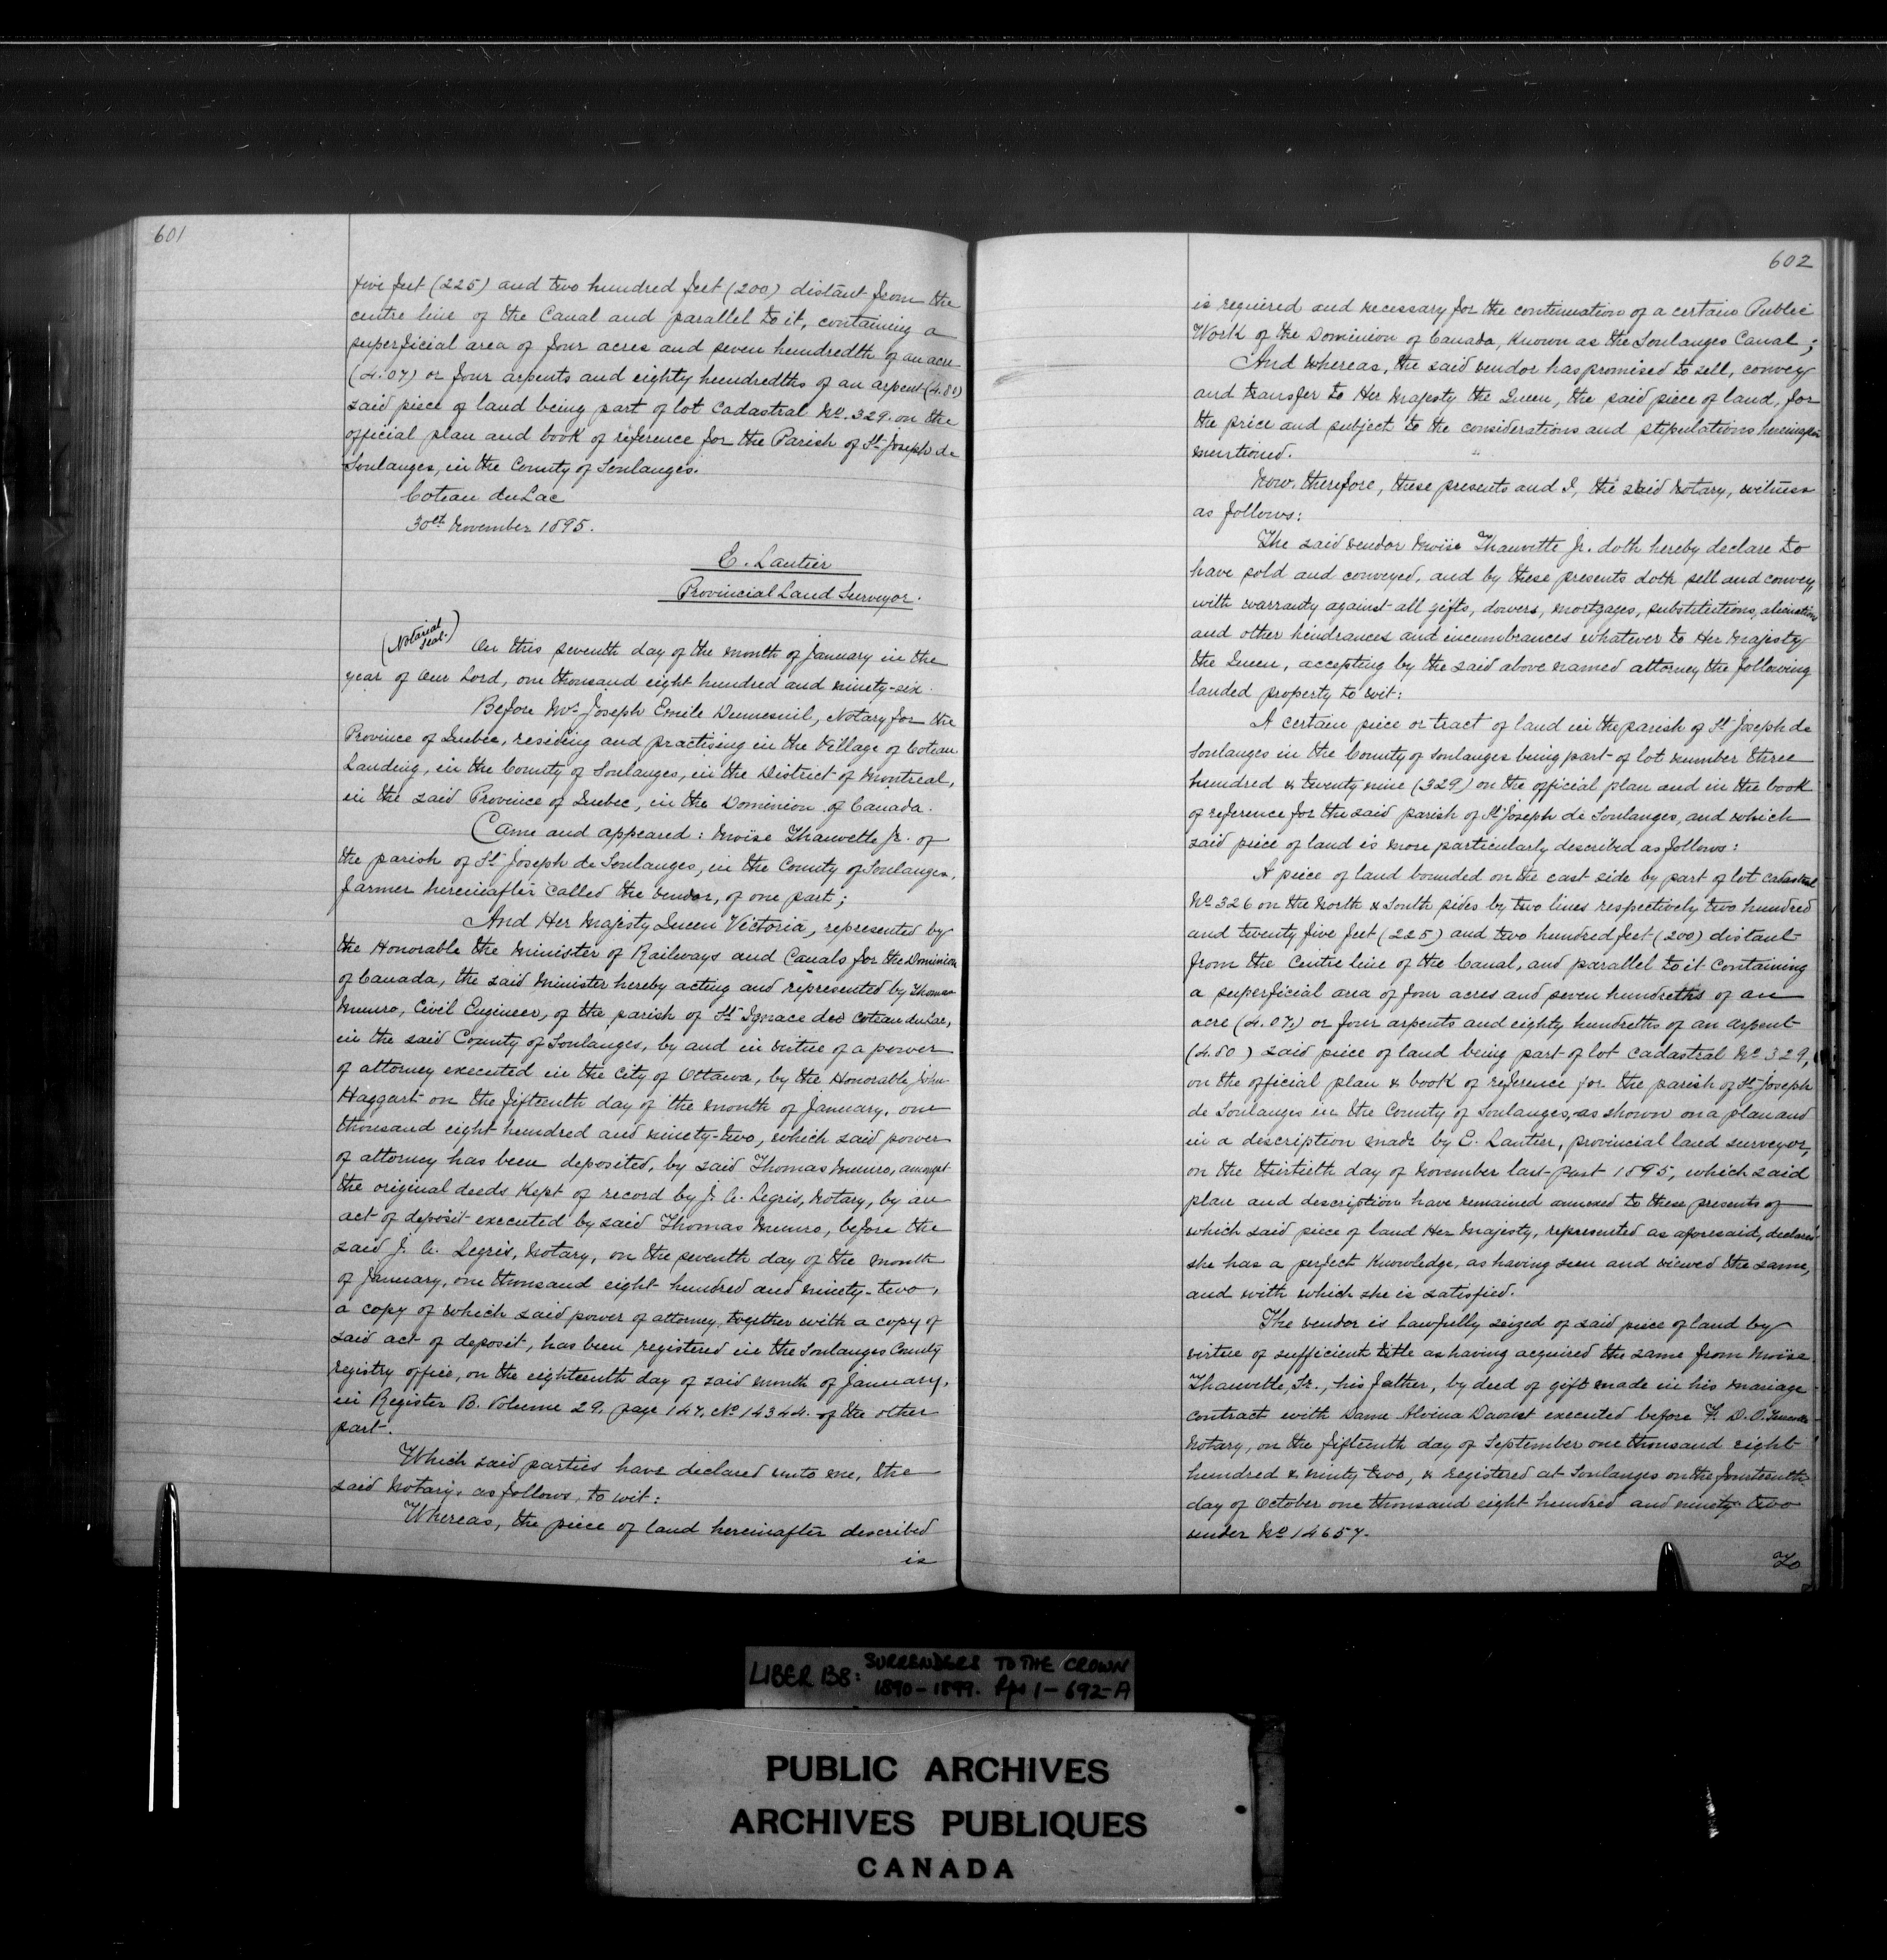 601
five feet (225) and two hundred feet (200) distant from the
centre line of the Canal and parallel to it, containing a
superficial area of four acres and seven hundredth of an acre
(4.07) or four arpents and eighty hundredths of an arpent (4.80)
said piece of land being part of lot Cadastral No. 329. on the
official plan and book of reference for the Parish of St Joseph de
Soulanges, in the County of Soulanges.
Coteau du Lac
30th November 1895.
E. Lantier
Provincial Land Surveyor.
(Notarial seal.)
On this seventh day of the month of January in the
year of Our Lord, one thousand eight hundred and ninety-six.
Before Mr. Joseph Emile Dumesnil, Notary for the
Province of Quebec, residing and practising in the Village of Coteau
Landing, in the County of Soulanges, in the District of Montreal,
in the said Province of Quebec, in the Dominion of Canada.
Came and appeared: Moïse Thauvette Jr. of
the parish of St Joseph de Soulanges, in the County of Soulanges,
farmer hereinafter called the vendor, of one part;
And Her Majesty Queen Victoria, represented by
the Honorable the Minister of Railways and Canals for the Dominion
of Canada, the said Minister hereby acting and represented by Thomas
Munro, Civil Engineer, of the parish of St Ignace du Coteau du Lac,
in the said County of Soulanges, by and in virtue of a power
of attorney executed in the City of Ottawa, by the Honorable John
Haggart on the fifteenth day of the month of January, one
thousand eight hundred and ninety-two, which said power
of attorney has been deposited, by said Thomas Munro, amongst
the original deeds kept of record by J. A. Legris, Notary, by an
act of deposit executed by said Thomas Munro, before the
said J. A. Legris, Notary, on the seventh day of the month
of January, one thousand eight hundred and ninety-two,
a copy of which said power of attorney, together with a copy of
said act of deposit, has been registered in the Soulanges County
registry office, on the eighteenth day of said month of January,
in Register B. Volume 29, page 147, No 14344. of the other
part.
Which said parties have declared unto me, the
said Notary, as follows, to wit:
Whereas, the piece of land hereinafter described
is
602
is required and necessary for the continuation of a certain Public
Work of the Dominion of Canada, known as the Soulanges Canal;
And Whereas, the said vendor has promised to sell, convey
and transfer to Her Majesty the Queen, the said piece of land, for
the price and subject to the considerations and stipulations hereinafter
mentioned.
Now, therefore, these presents and I, the said Notary, witness
as follows:
The said vendor Moïse Thauvette Jr. doth hereby declare to
have sold and conveyed, and by these presents doth sell and convey,
with warranty against all gifts, dowers, mortgages, substitutions, alienations
and other hindrances and incumbrances whatever to Her Majesty
the Queen, accepting by the said above named attorney the following
landed property to wit:
A certain piece or tract of land in the parish of St Joseph de
Soulanges in the County of Soulanges being part of lot number three
hundred & twenty nine (329) on the official plan and in the book
of reference for the said parish of St Joseph de Soulanges, and which
said piece of land is more particularly described as follows:
A piece of land bounded on the east side by part of lot Cadastral
No 326 on the North & South sides by two lines respectively two hundred
and twenty five feet (225) and two hundred feet (200) distant
from the Centre line of the Canal, and parallel to it containing
a superficial area of four acres and seven hundreths of an
acre (4.07) or four arpents and eighty hundreths of an arpent
(4.80) said piece of land being part of lot Cadastral No 329,
on the official plan & book of reference for the parish of St Joseph
de Soulanges in the County of Soulanges, as shown on a plan and
in a description made by E. Lantier, provincial land surveyor,
on the thirtieth day of November last past 1895, which said
plan and description have remained annexed to these presents of
which said piece of land Her Majesty, represented as aforesaid, declares
she has a perfect knowledge, as having seen and viewed the same,
and with which she is satisfied.
The vendor is lawfully seized of said piece of land by
virtue of sufficient title as having acquired the same from Moïse
Thauvette, Sr., his father, by deed of gift made in his mariage
contract with Dame Alvina Daoust executed before F. D. O.
Notary, on the fifteenth day of September one thousand eight
hundred & ninety two, & registered at Soulanges on the fourteenth
day of October one thousand eight hundred and ninety two
under No 14657.
To
LIBER B8: SURRENDERS TO THE CROWN
1890-1899. Pps 1-692-A
PUBLIC ARCHIVES
ARCHIVES PUBLIQUES
CANADA